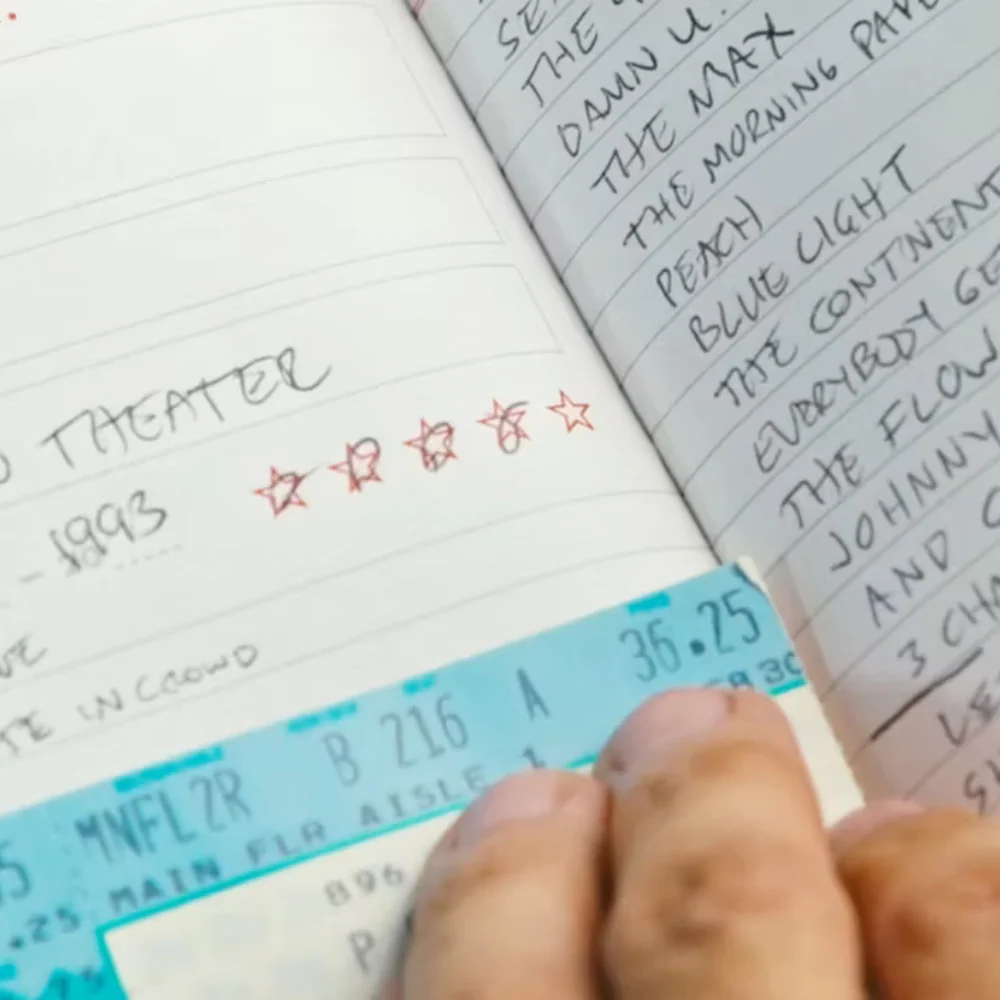 THEATER
1993
IN CROWD
36.25
MNFL2R B 216 A
MAIN FLR AISLE 1
.25
896
P
THE
DAMN U.
THE MAX
THE MORNING
PEACH
BLUE LIGHT
THE CONTINENT
EVERYBODY GE
THE FLOW
JOHNNY
AND
3 CHA